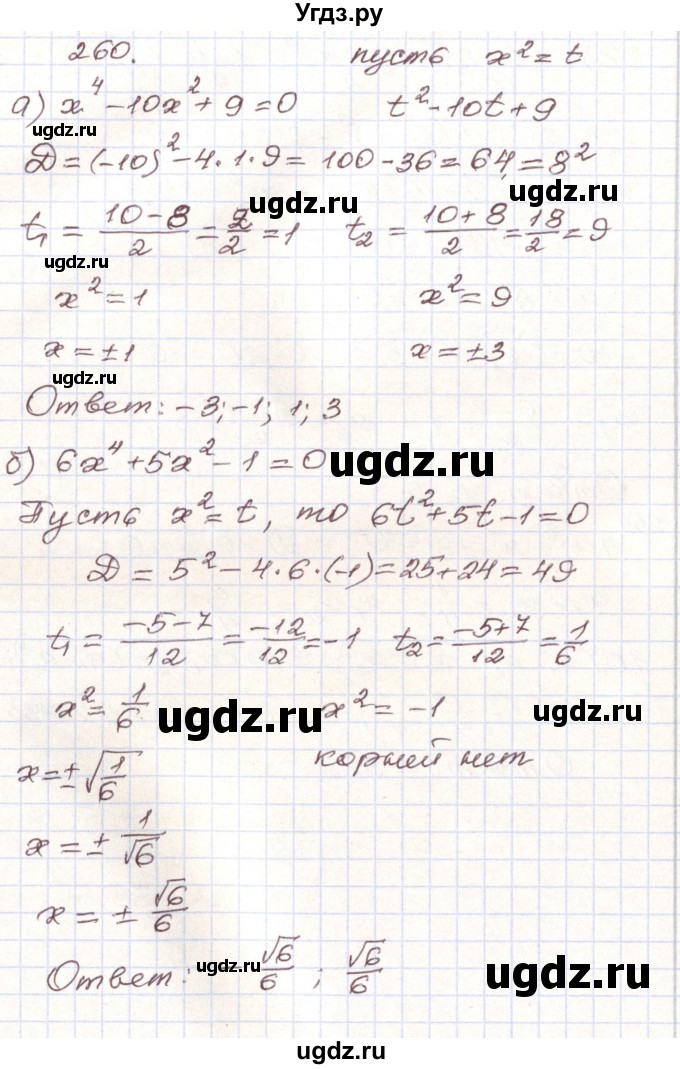 Угдз.ру
260. пусть x² = t
а) x⁴ - 10x² + 9 = 0 t² - 10t + 9
ugdz.ru
Д = (-10)² - 4·1·9 = 100 - 36 = 64 = 8²
ugdz.ru ugdz.ru
t₁ = (10-8)/2 = 2/2 = 1 t₂ = (10+8)/2 = 18/2 = 9
ugdz.ru
x² = 1 x² = 9
x = ±1 x = ±3
ugdz.ru
Ответ: -3; -1; 1; 3
б) 6x⁴ + 5x² - 1 = 0
ugdz.ru
Пусть x² = t, то 6t² + 5t - 1 = 0
Д = 5² - 4·6·(-1) = 25 + 24 = 49
t₁ = (-5-7)/12 = -12/12 = -1 t₂ = (-5+7)/12 = 1/6
x² = 1/6 x² = -1
ugdz.ru ugdz.ru
x = ±√(1/6) корней нет
x = ± 1/√6
x = ± √6/6
Ответ: - √6/6 ; √6/6
ugdz.ru ugdz.ru
ugdz.ru